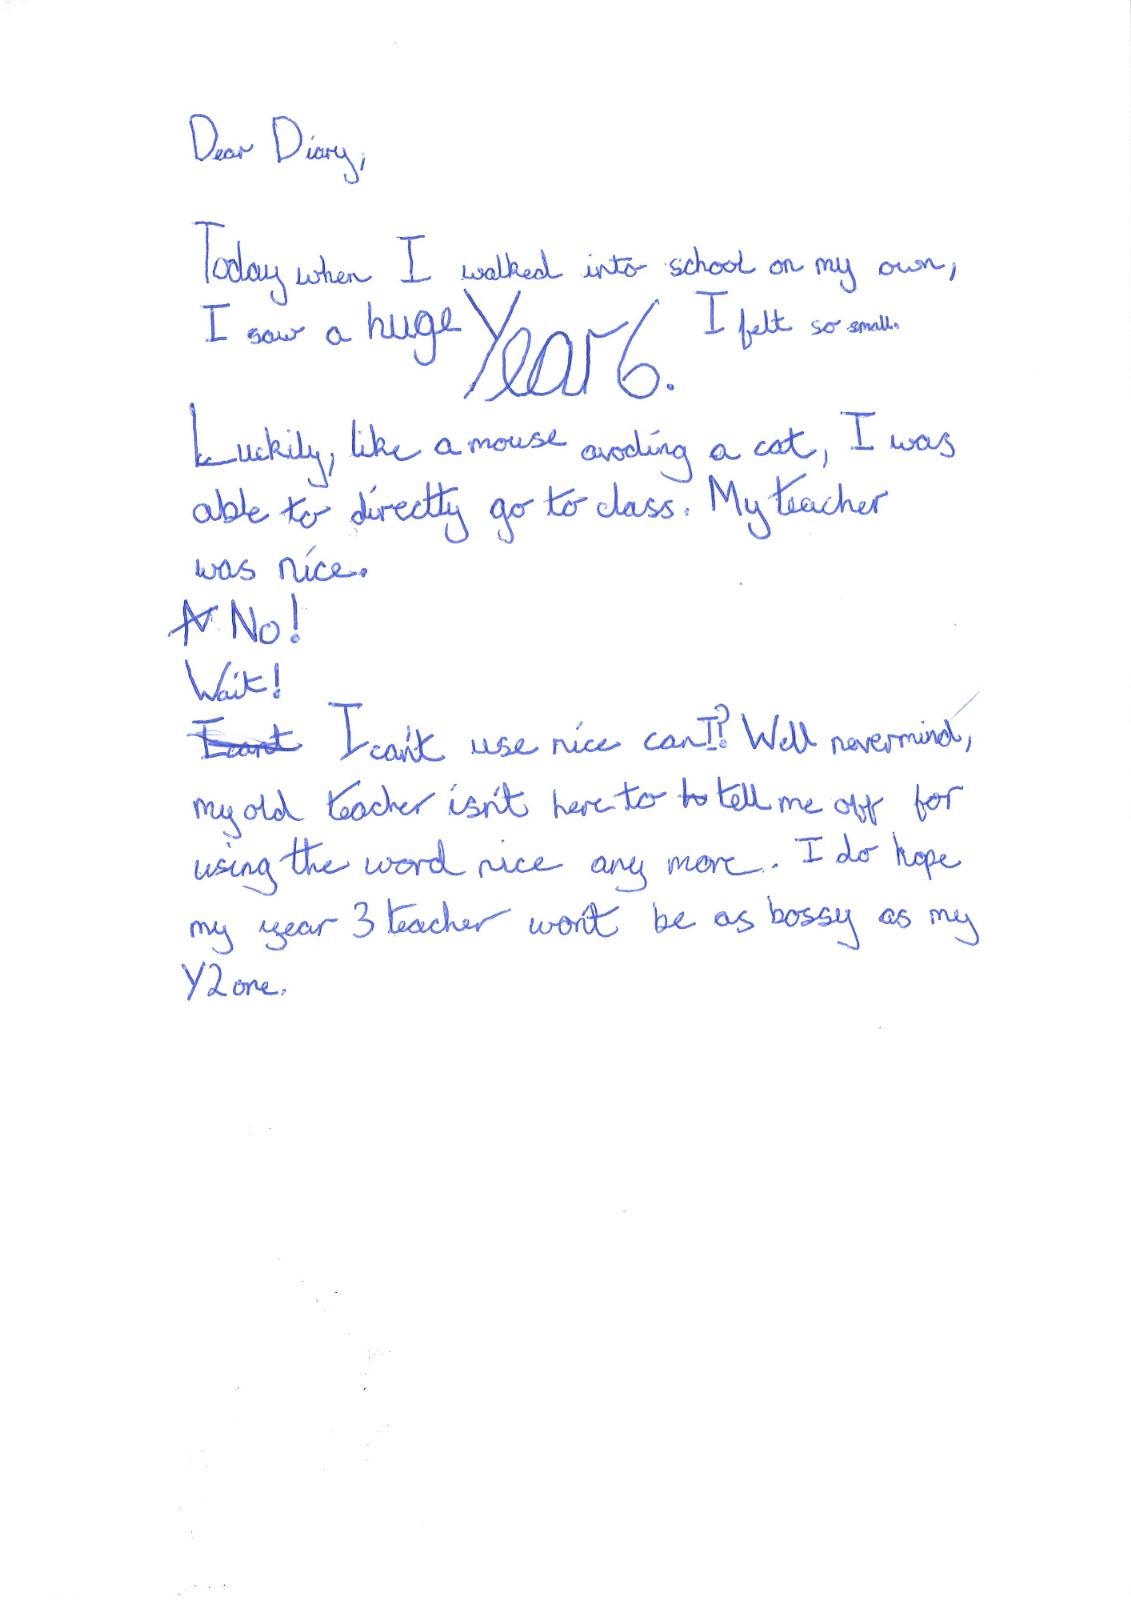 Dear Diary,
Today when I walked into school on my own,
I saw a huge Year 6. I felt so small.
Luckily, like a mouse avoding a cat, I was
able to directly go to class. My teacher
was nice.
N No!
Wait!
I cant I can't use nice can I? Well nevermind,
my old teacher isn't here to to tell me off for
using the word nice any more. I do hope
my year 3 teacher won't be as bossy as my
Y2 one.